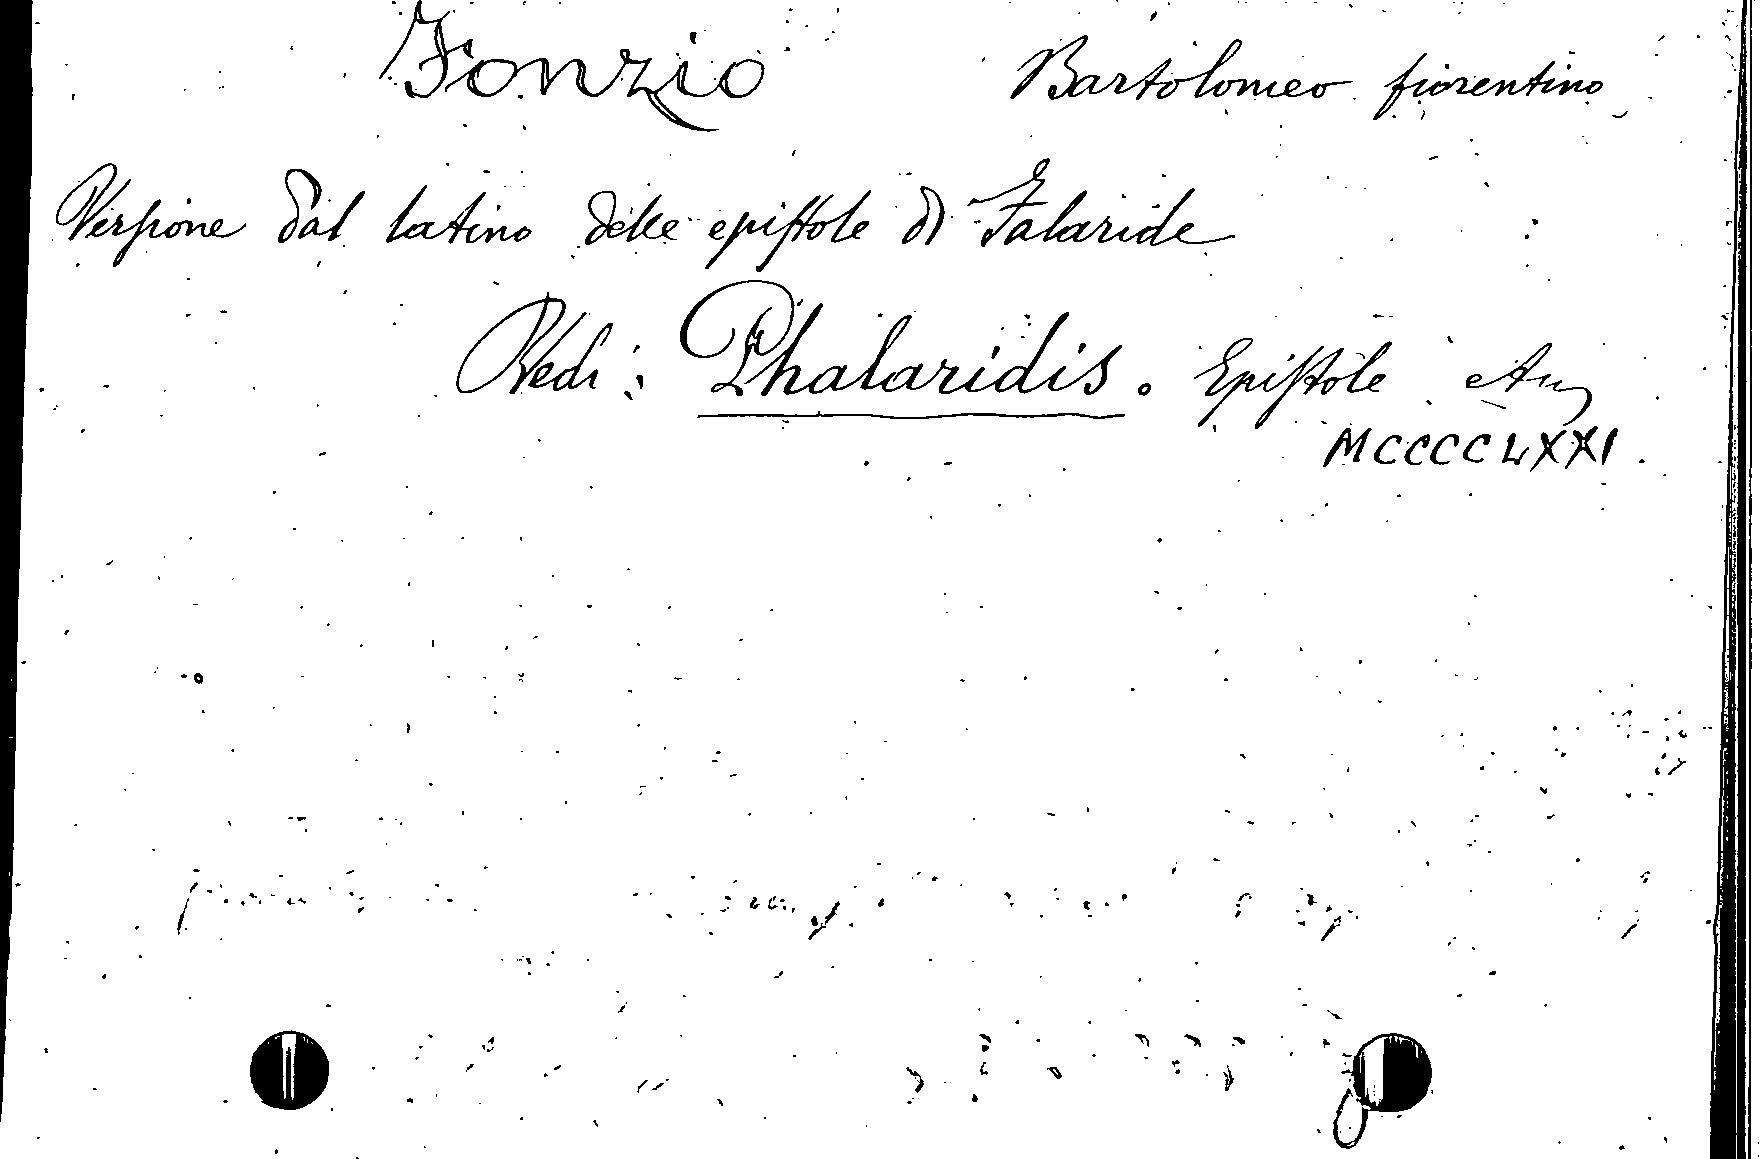 Fonzio Bartolomeo fiorentino
Versione dal latino delle epistole di Falaride
Vedi: Phalaridis. Epistole
MCCCCLXXI.